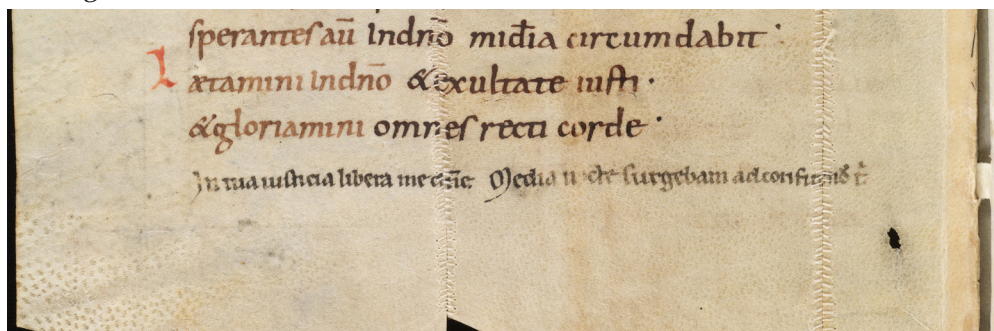 sperantes aū Indnō mīdia circumdabit ·
Lætamini Indnō & exultate iusti ·
& gloriamini omnes recti corde ·
In tua iusticia libera me dn̄e Media nocte surgebam ad confitendū t̄